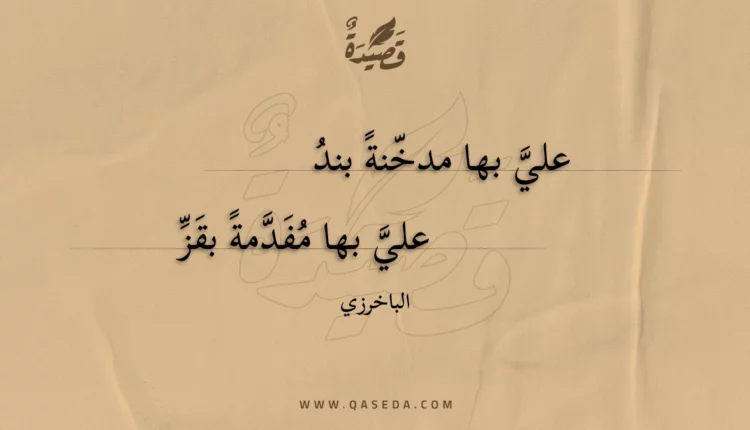 قَصِيْدَةٌ
عليَّ بها مدخّنةً بندُ
عليَّ بها مُفَدَّمةً بقَزِّ
الباخرزي
WWW.QASEDA.COM